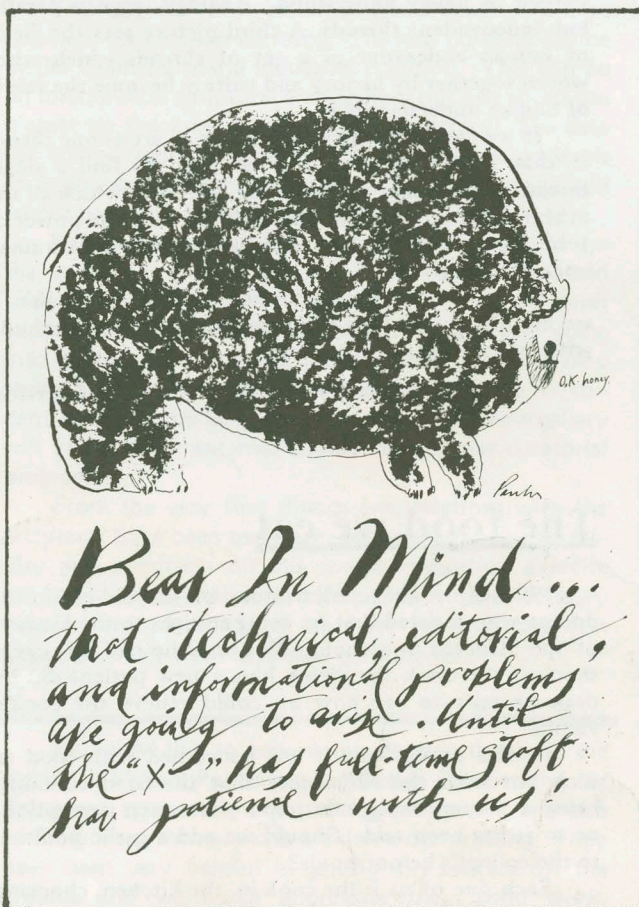 O.K. honey.
Bear In Mind...
that technical, editorial,
and informational problems
are going to arise. Until
the "X" has full-time staff
hav patience with us